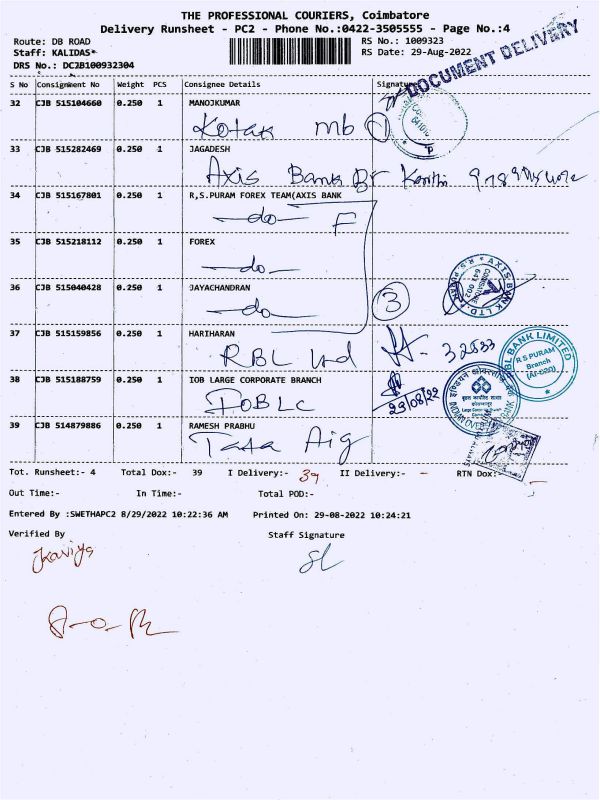 THE PROFESSIONAL COURIERS, Coimbatore
Delivery Runsheet - PC2 - Phone No.:0422-3505555 - Page No.:4
Route: DB ROAD
RS No.: 1009323
Staff: KALIDAS*
RS Date: 29-Aug-2022
DRS No.: DC2B100932304
DOCUMENT DELIVERY
S No Consignment No Weight PCS Consignee Details Signature
32 CJB 515104660 0.250 1 MANOJKUMAR
Kotak mb 1
33 CJB 515282469 0.250 1 JAGADESH
Axis Bank Br
34 CJB 515167801 0.250 1 R,S.PURAM FOREX TEAM(AXIS BANK
-do- F
35 CJB 515218112 0.250 1 FOREX
-do-
36 CJB 515040428 0.250 1 JAYACHANDRAN
-do- 3
AXIS BANK LTD
R.S. PURAM
COIMBATORE
641 002
37 CJB 515159856 0.250 1 HARIHARAN
RBL 32533
RBL BANK LIMITED
R S PURAM
Branch
38 CJB 515188759 0.250 1 IOB LARGE CORPORATE BRANCH
IOB LC
29/08/22
39 CJB 514879886 0.250 1 RAMESH PRABHU
Tata Aig
Tot. Runsheet:- 4 Total Dox:- 39 I Delivery:- 39 II Delivery:- - RTN Dox:- -
Out Time:- In Time:- Total POD:-
Entered By :SWETHAPC2 8/29/2022 10:22:36 AM Printed On: 29-08-2022 10:24:21
Verified By Staff Signature
Kaviya